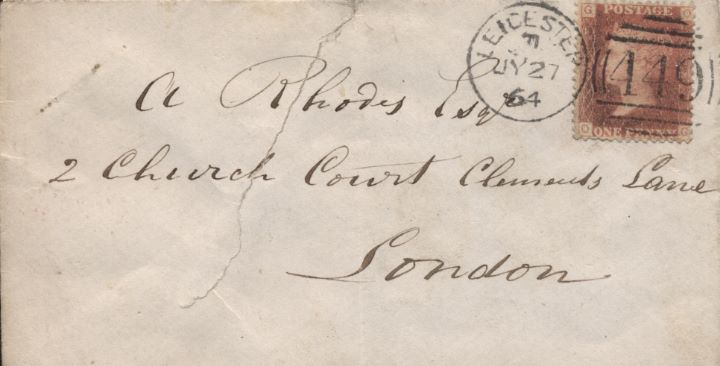 LEICESTER
F
JY 27
64
G POSTAGE O
449
O ONE PENNY G
A Rhodes Esqr
2 Church Court Clements Lane
London